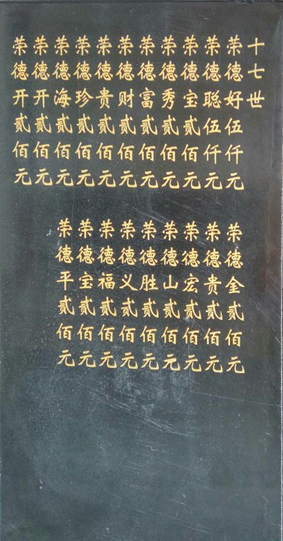 十七世
荣德好伍仟元
荣德聪伍仟元
荣德宝贰佰元
荣德秀贰佰元
荣德富贰佰元
荣德财贰佰元
荣德贵贰佰元
荣德珍贰佰元
荣德海贰佰元
荣德开贰佰元
荣德开贰佰元
荣德金贰佰元
荣德贵贰佰元
荣德宏贰佰元
荣德山贰佰元
荣德胜贰佰元
荣德义贰佰元
荣德福贰佰元
荣德宝贰佰元
荣德平贰佰元